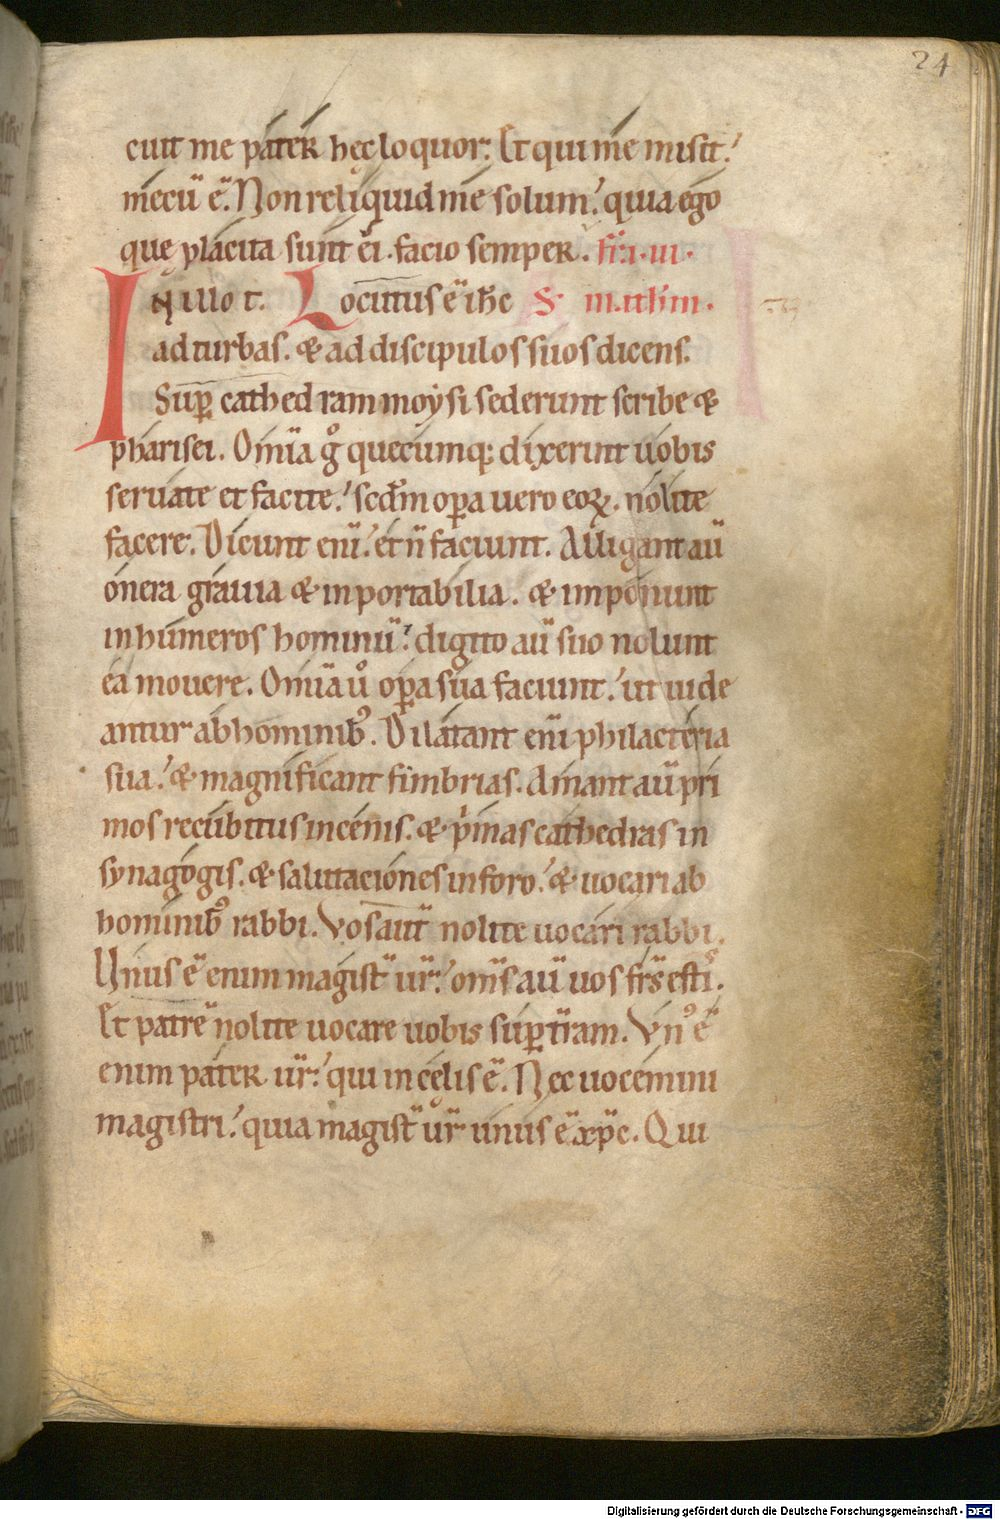 24
cuit me pater hęc loquor. Et qui me misit.
mecū ē. Non reliquid me solum. quia ego
quę placita sunt ei. facio semper. fr̄i. iii.
IN illo t. Locutus ē ih̄c S.
ad turbas. & ad discipulos suos dicens.
Sup̄ cathedram moysi sederunt scribe &
pharisei. Om̄ia gͦ quecumq; dixerint uobis
seruate et facite. sed̄m op̄a uero eoꝝ. nolite
facere. Dicunt eni̅. et n̄ faciunt. Alligant au̅
onera grauia & inportabilia. & imponunt
in humeros hominū. digito aū suo nolunt
ea mouere. Om̄ia uͦ op̄a sua faciunt. ut uide
antur ab hominibꝰ. Dilatant eni̅ philacteria
sua. & magnificant fimbrias. Amant aū pri
mos recubitus in cenis. & pͥmas cathedras in
synagogis. & salutaciones in foro. & uocari ab
hominibꝰ rabbi. Vos aut̄ nolite uocari rabbi.
Unus ē enim magist̄ ur̄. om̄s aū uos fr̄s estis.
Et patrē nolite uocare uobis sup̄ tr̄am. Vnꝰ ē
enim pater ur̄. qui in cęlis ē. Nec uocemini
magistri. quia magist̄ ur̄ unus ē xp̄c. Qui
Digitalisierung gefördert durch die Deutsche Forschungsgemeinschaft - DFG